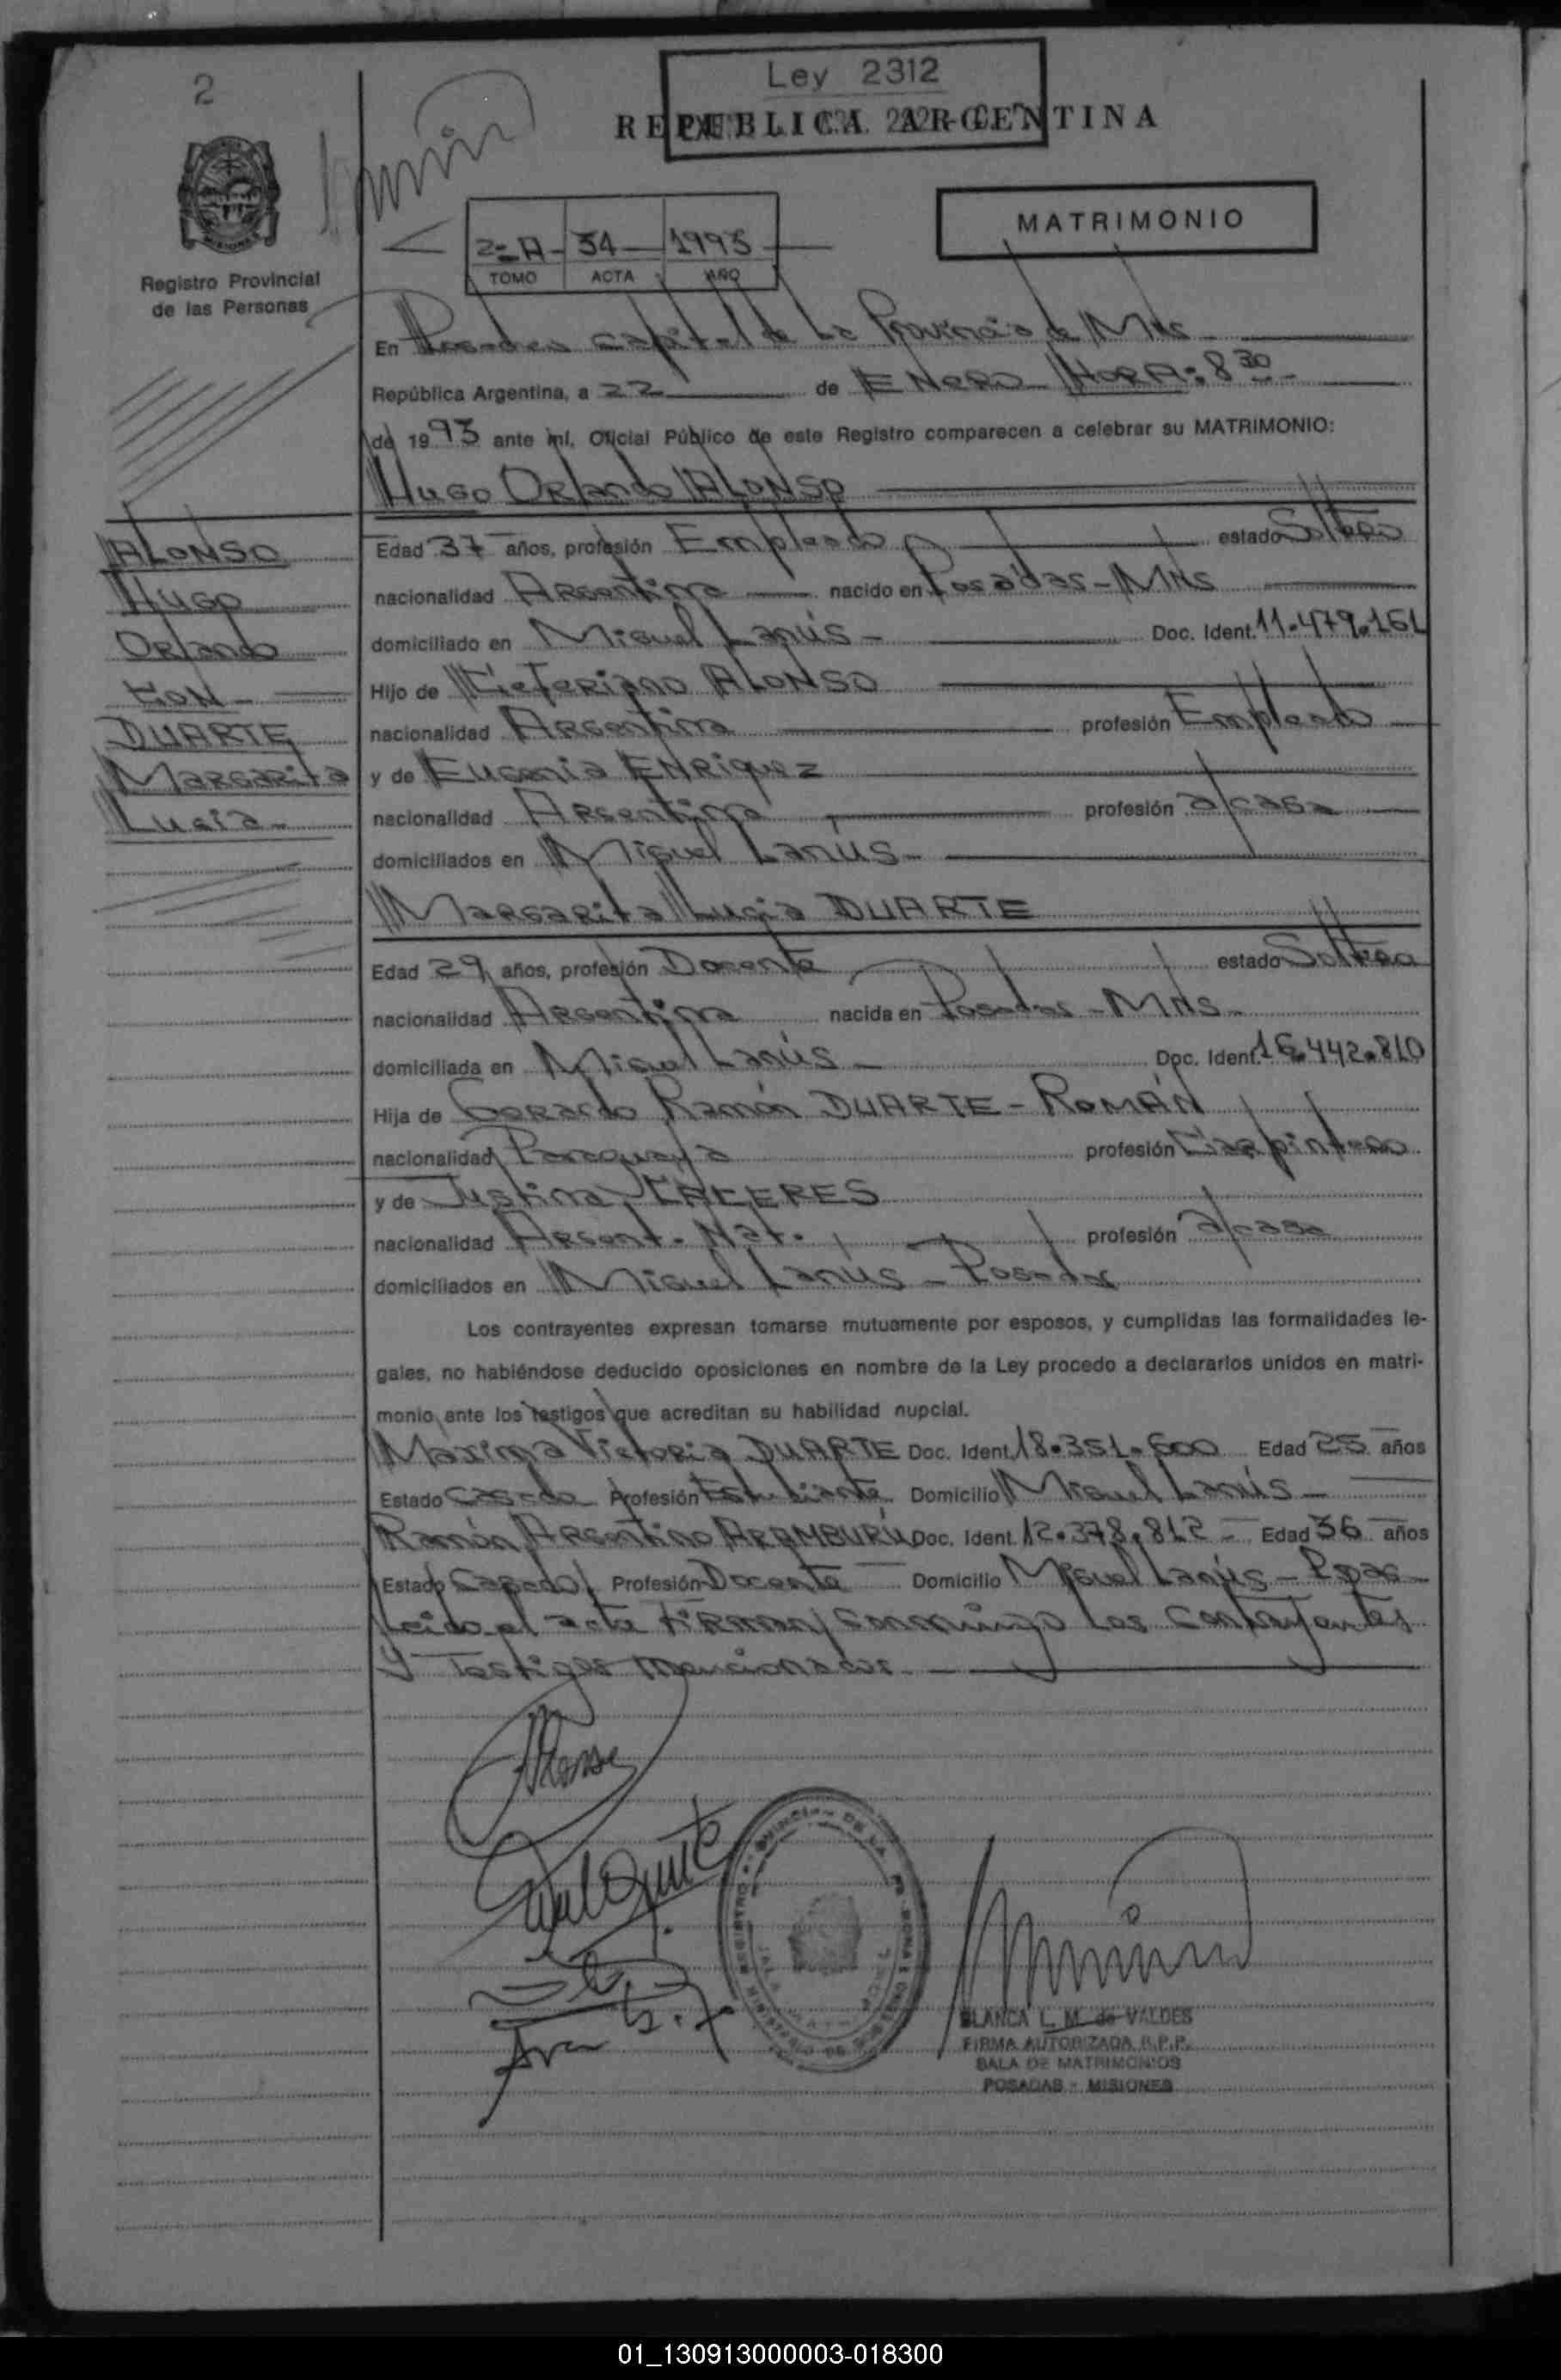 2
Ley 2312
REPUBLICA ARGENTINA
MATRIMONIO
2-A- 34 1993
TOMO ACTA AÑO
Registro Provincial
de las Personas
En Posadas Capital de La Provincia de Mns
República Argentina, a 22 de ENERO HORA: 8 30
de 1993 ante mí, Oficial Público de este Registro comparecen a celebrar su MATRIMONIO:
Hugo Orlando ALONSO
ALONSO
Hugo
Orlando
CON
DUARTE
Margarita
Lucia
Edad 37 años, profesión Empleado estado Soltero
nacionalidad Argentina nacido en Posadas - Mns
domiciliado en Miguel Lanús - Doc. Ident. 11.479.161
Hijo de ALONSO
nacionalidad Argentina profesión Empleado
y de Eugenia ENRiquez
nacionalidad Argentina profesión a/casa
domiciliados en Miguel Lanús -
Margarita Lucia DUARTE
Edad 29 años, profesión Docente estado Soltera
nacionalidad Argentina nacida en Posadas - Mns -
domiciliada en Miguel Lanús - Doc. Ident. 16.442.810
Hija de Gerardo Ramón DUARTE - ROMÁN
nacionalidad Paraguaya profesión Carpintero
y de Justina CACERES
nacionalidad Argent. Nat. profesión a/casa
domiciliados en Miguel Lanús - Posadas
Los contrayentes expresan tomarse mutuamente por esposos, y cumplidas las formalidades le-
gales, no habiéndose deducido oposiciones en nombre de la Ley procedo a declararlos unidos en matri-
monio ante los testigos que acreditan su habilidad nupcial.
Maxima Victoria DUARTE Doc. Ident. 18.351.600 Edad 25 años
Estado Casada Profesión Estudiante Domicilio Miguel Lanús -
Ramón Argentino ARAMBURÚ Doc. Ident. 12.378.812 - Edad 36 años
Estado Casado Profesión Docente Domicilio Miguel Lanús - Pdas
Leido el acta Firman conmigo los Contrayentes
Y Testigos mencionados
BLANCA L. M. de VALDES
FIRMA AUTORIZADA R.P.P.
SALA DE MATRIMONIOS
POSADAS - MISIONES
01_130913000003-018300